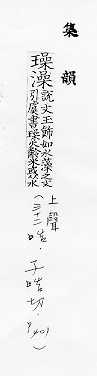 集韻
璪澡
說文玉飾如水藻之文
引虞書璪火黺米或从水
上聲
(三十二晧．子晧切．P401)